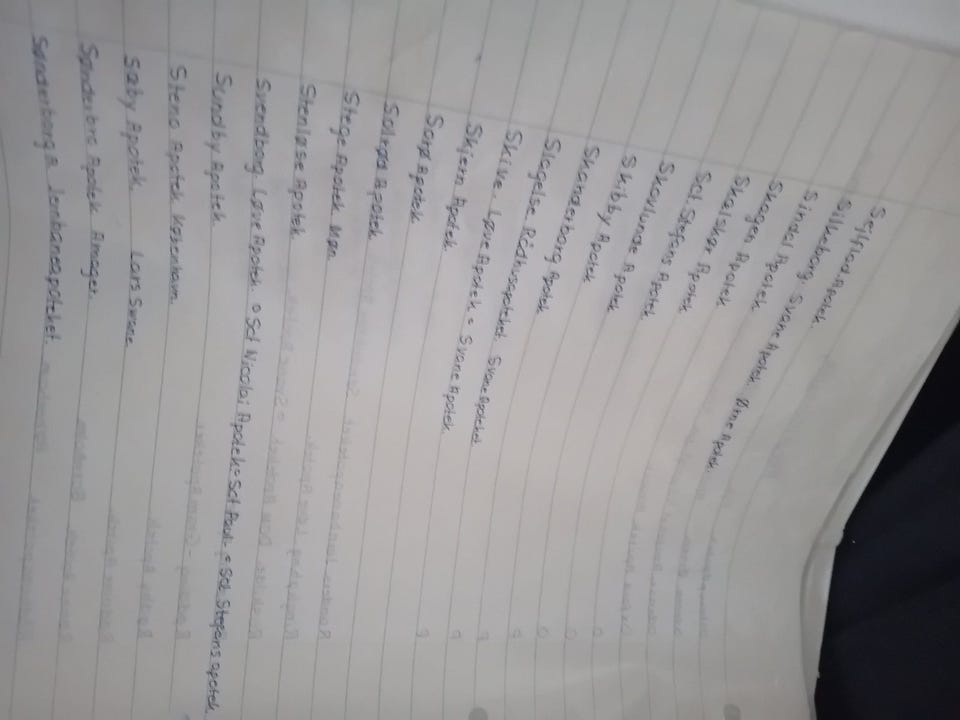 Sejlflod Apotek.
Silkeborg, Svane Apotek. Ørne Apotek.
Sindal Apotek.
Skagen Apotek.
Skælskør Apotek
Sct Stefans Apotek
Skovlunde Apotek
Skibby Apotek
Skanderborg Apotek
Slagelse Rådhusapoteket Svane Apoteket
Skive. Løve Apotek = Svane Apotek.
Skjern Apotek.
Sorø Apotek
Solrød Apotek.
Stege Apotek Møn.
Stenløse Apotek.
Svendborg Løve Apotek = Sct Nicolai Apotek = Sct Paul = Sct Stefans apotek.
Sundby Apotek.
Steno Apotek København
Sæby Apotek Lars Svane
Sønderbro Apotek Amager.
Sønderborg Jernbaneapoteket